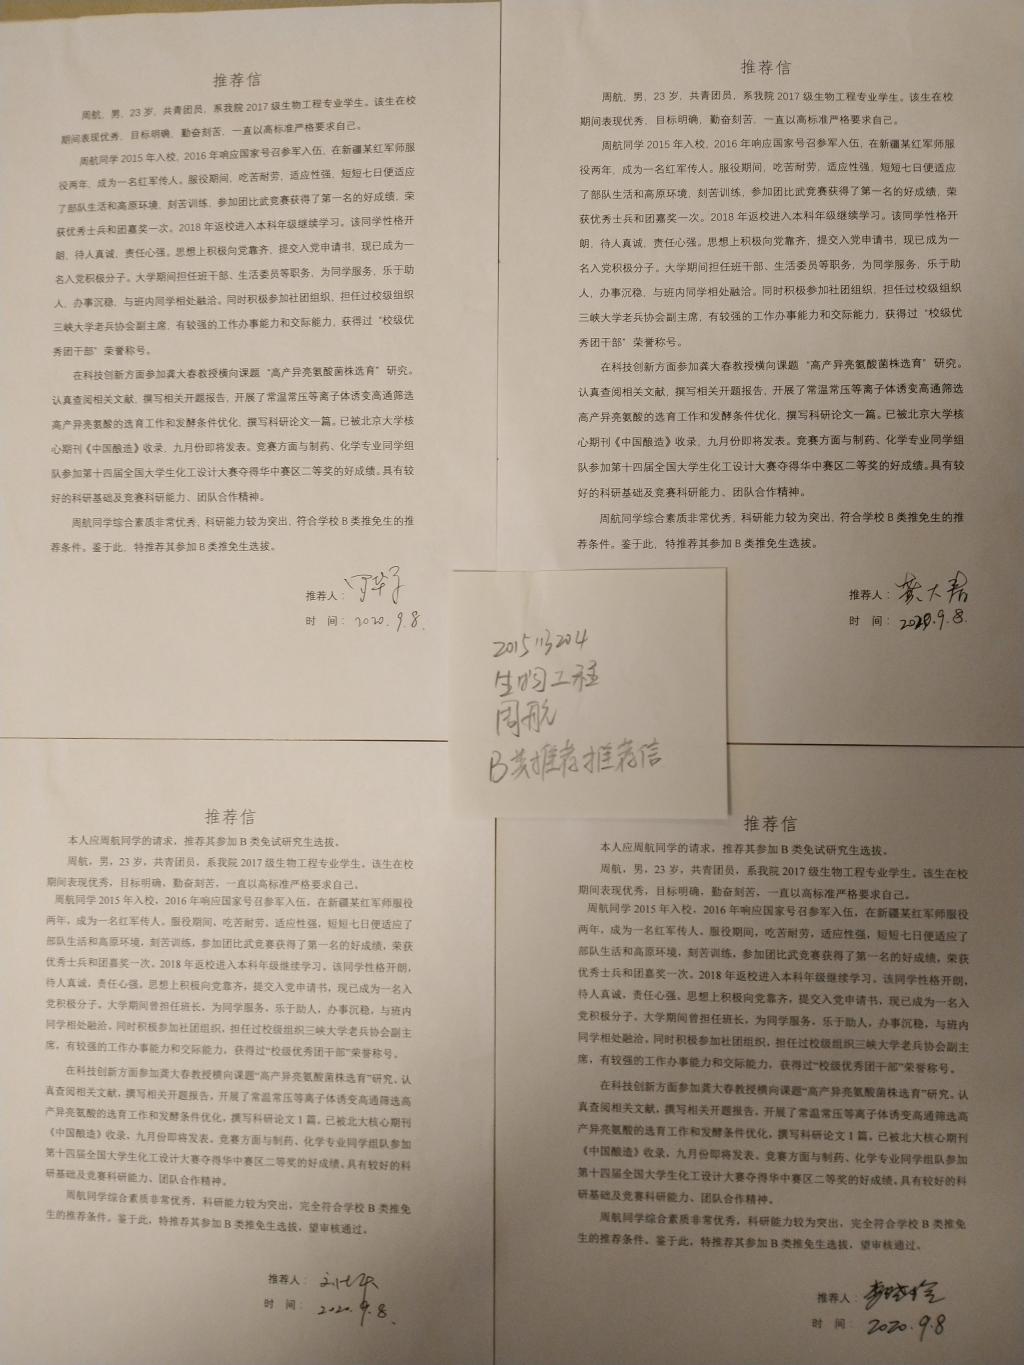 推荐信
周航，男，23 岁，共青团员，系我院 2017 级生物工程专业学生。该生在校
期间表现优秀，目标明确，勤奋刻苦，一直以高标准严格要求自己。
周航同学 2015 年入校，2016 年响应国家号召参军入伍，在新疆某红军师服
役两年，成为一名红军传人。服役期间，吃苦耐劳，适应性强，短短七日便适应
了部队生活和高原环境，刻苦训练，参加团比武竞赛获得了第一名的好成绩，荣
获优秀士兵和团嘉奖一次。2018 年返校进入本科年级继续学习。该同学性格开
朗，待人真诚，责任心强。思想上积极向党靠齐，提交入党申请书，现已成为一
名入党积极分子。大学期间担任班干部、生活委员等职务，为同学服务，乐于助
人，办事沉稳，与班内同学相处融洽。同时积极参加社团组织，担任过校级组织
三峡大学老兵协会副主席，有较强的工作办事能力和交际能力，获得过“校级优
秀团干部”荣誉称号。
在科技创新方面参加龚大春教授横向课题“高产异亮氨酸菌株选育”研究。
认真查阅相关文献，撰写相关开题报告，开展了常温常压等离子体诱变高通筛选
高产异亮氨酸的选育工作和发酵条件优化，撰写科研论文一篇。已被北京大学核
心期刊《中国酿造》收录，九月份即将发表。竞赛方面与制药、化学专业同学组
队参加第十四届全国大学生化工设计大赛夺得华中赛区二等奖的好成绩。具有较
好的科研基础及竞赛科研能力、团队合作精神。
周航同学综合素质非常优秀，科研能力较为突出，符合学校 B 类推免生的推
荐条件。鉴于此，特推荐其参加 B 类推免生选拔。
推荐人：
时 间：2020.9.8.
推荐信
周航，男，23 岁，共青团员，系我院 2017 级生物工程专业学生。该生在校
期间表现优秀，目标明确，勤奋刻苦，一直以高标准严格要求自己。
周航同学 2015 年入校，2016 年响应国家号召参军入伍，在新疆某红军师服
役两年，成为一名红军传人。服役期间，吃苦耐劳，适应性强，短短七日便适应
了部队生活和高原环境，刻苦训练，参加团比武竞赛获得了第一名的好成绩，荣
获优秀士兵和团嘉奖一次。2018 年返校进入本科年级继续学习。该同学性格开
朗，待人真诚，责任心强。思想上积极向党靠齐，提交入党申请书，现已成为一
名入党积极分子。大学期间担任班干部、生活委员等职务，为同学服务，乐于助
人，办事沉稳，与班内同学相处融洽。同时积极参加社团组织，担任过校级组织
三峡大学老兵协会副主席，有较强的工作办事能力和交际能力，获得过“校级优
秀团干部”荣誉称号。
在科技创新方面参加龚大春教授横向课题“高产异亮氨酸菌株选育”研究。
认真查阅相关文献，撰写相关开题报告，开展了常温常压等离子体诱变高通筛选
高产异亮氨酸的选育工作和发酵条件优化，撰写科研论文一篇。已被北京大学核
心期刊《中国酿造》收录，九月份即将发表。竞赛方面与制药、化学专业同学组
队参加第十四届全国大学生化工设计大赛夺得华中赛区二等奖的好成绩。具有较
好的科研基础及竞赛科研能力、团队合作精神。
周航同学综合素质非常优秀，科研能力较为突出，符合学校 B 类推免生的推
荐条件。鉴于此，特推荐其参加 B 类推免生选拔。
推荐人：龚大春
时 间：2020.9.8.
2015113204
生物工程
周航
B类推荐推荐信
推荐信
本人应周航同学的请求，推荐其参加 B 类免试研究生选拔。
周航，男，23 岁，共青团员，系我院 2017 级生物工程专业学生。该生在校
期间表现优秀，目标明确，勤奋刻苦，一直以高标准严格要求自己。
周航同学 2015 年入校，2016 年响应国家号召参军入伍，在新疆某红军师服役
两年，成为一名红军传人。服役期间，吃苦耐劳，适应性强，短短七日便适应了
部队生活和高原环境，刻苦训练，参加团比武竞赛获得了第一名的好成绩，荣获
优秀士兵和团嘉奖一次。2018 年返校进入本科年级继续学习。该同学性格开朗，
待人真诚，责任心强。思想上积极向党靠齐，提交入党申请书，现已成为一名入
党积极分子。大学期间曾担任班长，为同学服务，乐于助人，办事沉稳，与班内
同学相处融洽。同时积极参加社团组织，担任过校级组织三峡大学老兵协会副主
席，有较强的工作办事能力和交际能力，获得过“校级优秀团干部”荣誉称号。
在科技创新方面参加龚大春教授横向课题“高产异亮氨酸菌株选育”研究。认
真查阅相关文献，撰写相关开题报告，开展了常温常压等离子体诱变高通筛选高
产异亮氨酸的选育工作和发酵条件优化，撰写科研论文 1 篇。已被北大核心期刊
《中国酿造》收录，九月份即将发表。竞赛方面与制药、化学专业同学组队参加
第十四届全国大学生化工设计大赛夺得华中赛区二等奖的好成绩。具有较好的科
研基础及竞赛科研能力、团队合作精神。
周航同学综合素质非常优秀，科研能力较为突出，完全符合学校 B 类推免
生的推荐条件。鉴于此，特推荐其参加 B 类推免生选拔，望审核通过。
推荐人：
时 间：2020.9.8.
推荐信
本人应周航同学的请求，推荐其参加 B 类免试研究生选拔。
周航，男，23 岁，共青团员，系我院 2017 级生物工程专业学生。该生在校
期间表现优秀，目标明确，勤奋刻苦，一直以高标准严格要求自己。
周航同学 2015 年入校，2016 年响应国家号召参军入伍，在新疆某红军师服役
两年，成为一名红军传人。服役期间，吃苦耐劳，适应性强，短短七日便适应了
部队生活和高原环境，刻苦训练，参加团比武竞赛获得了第一名的好成绩，荣获
优秀士兵和团嘉奖一次。2018 年返校进入本科年级继续学习。该同学性格开朗，
待人真诚，责任心强。思想上积极向党靠齐，提交入党申请书，现已成为一名入
党积极分子。大学期间曾担任班长，为同学服务，乐于助人，办事沉稳，与班内
同学相处融洽。同时积极参加社团组织，担任过校级组织三峡大学老兵协会副主
席，有较强的工作办事能力和交际能力，获得过“校级优秀团干部”荣誉称号。
在科技创新方面参加龚大春教授横向课题“高产异亮氨酸菌株选育”研究。认
真查阅相关文献，撰写相关开题报告，开展了常温常压等离子体诱变高通筛选高
产异亮氨酸的选育工作和发酵条件优化，撰写科研论文 1 篇。已被北大核心期刊
《中国酿造》收录，九月份即将发表。竞赛方面与制药、化学专业同学组队参加
第十四届全国大学生化工设计大赛夺得华中赛区二等奖的好成绩。具有较好的科
研基础及竞赛科研能力、团队合作精神。
周航同学综合素质非常优秀，科研能力较为突出，完全符合学校 B 类推免
生的推荐条件。鉴于此，特推荐其参加 B 类推免生选拔，望审核通过。
推荐人：
时 间：2020.9.8